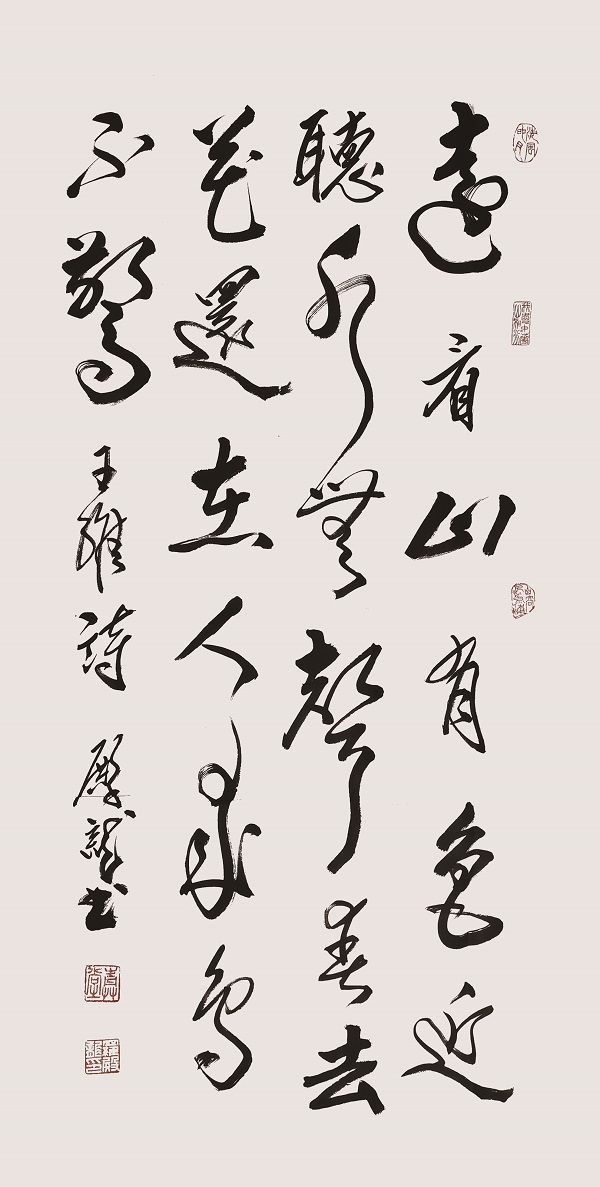 遠看山有色近
聽水無聲春去
花還在人來鳥
不驚
王維詩
殿龍書